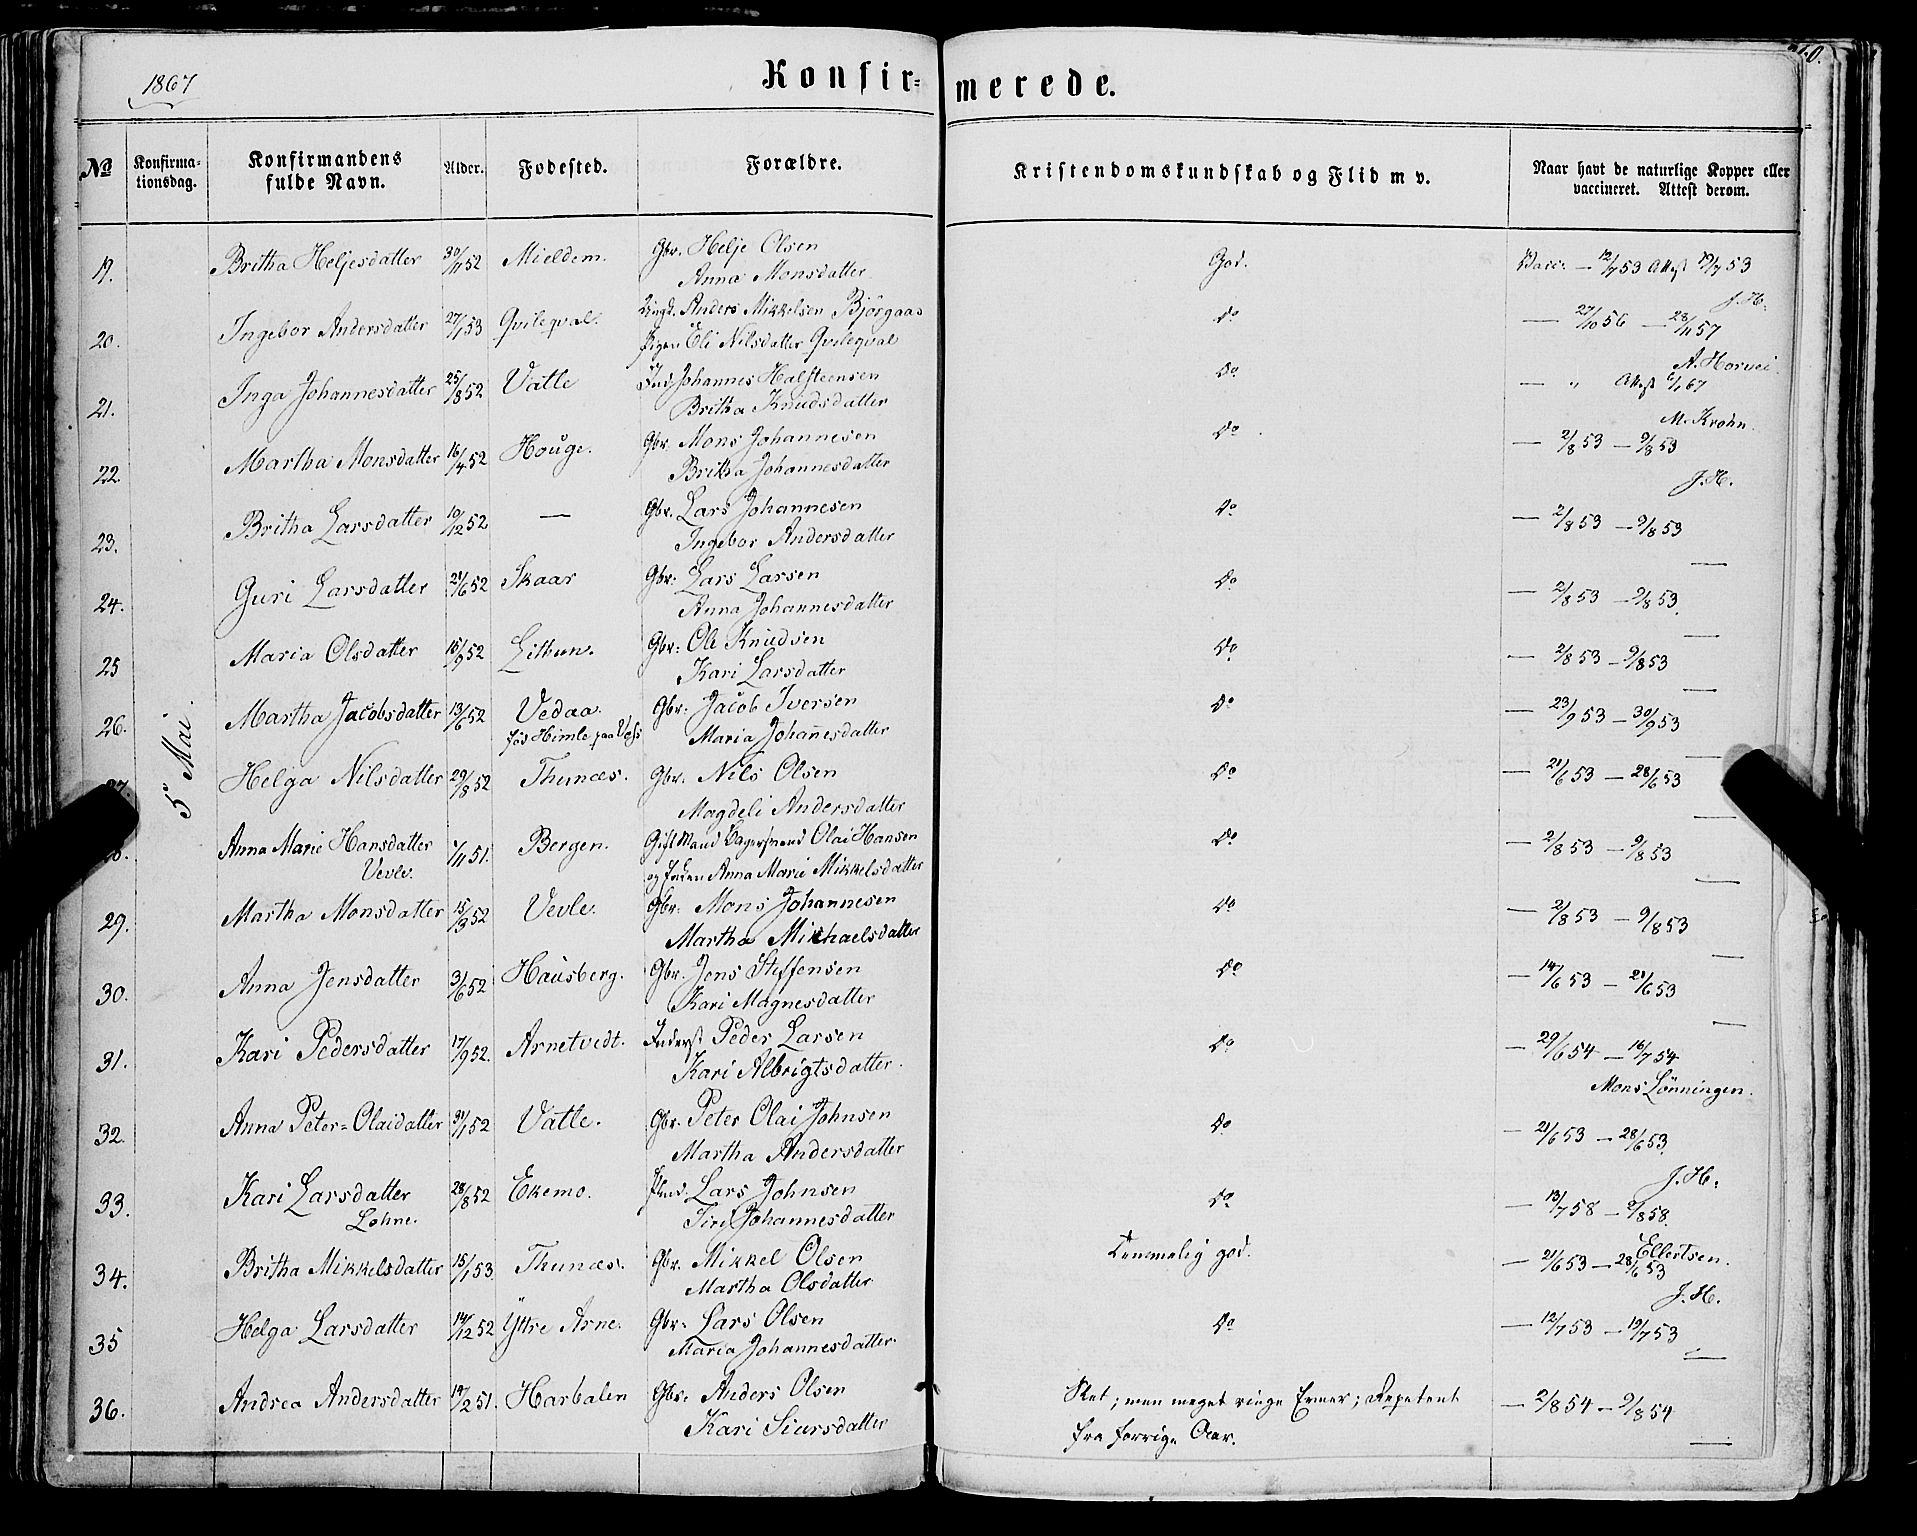 1867
Konfir=merede.
No
Konfirma-tionsdag.
Konfirmandens fulde Navn.
Alder.
Fødested.
Forældre.
Kristendomskundskab og Flid m v.
Naar havt de naturlige Kopper eller vaccineret. Attest derom.
5 Mai.
19. Britha Heljesdatter 30/11 52 Mieldem. Gbr. Helje Olsen God. Vacc: — 12/7 53 Attest 19/7 53
Anna Monsdatter J. H.
20. Ingebor Andersdatter 27/1 53 Qvileqval. Ungk. Anders Mikkelsen Björgaas do — 27/10 56 — 28/11 57
Pigen Eli Nilsdatter Qvileqval A. Horvei
21. Inga Johannesdatter 25/8 52 Vatle Ind. Johannes Halsteensen do — " Attest 6/1 67
Britha Knudsdatter M. Krohn.
22. Martha Monsdatter 16/4 52 Houge. Gbr. Mons Johannesen do — 2/8 53 — 9/8 53
Britha Johannesdatter J. H.
23. Britha Larsdatter 10/12 52 — Gbr. Lars Johannesen do — 2/8 53 — 9/8 53
Ingebor Andersdatter —
24. Guri Larsdatter 21/6 52 Skaar Gbr: Lars Larsen do — 2/8 53 — 9/8 53.
Anna Johannesdatter —
25 Maria Olsdatter 15/9 52 Litbun. Gbr: Ole Knudsen do — 2/8 53 — 9/8 53
Kari Larsdatter —
26. Martha Jacobsdatter 13/6 52 Vedaa. Gbr: Jacob Iversen do — 23/9 53 — 30/9 53
fød Himle paa Voss Maria Johannesdatter —
27. Helga Nilsdatter 29/8 52 Thunæs. Gbr. Nils Olsen do — 21/6 53 — 28/6 53
Magdeli Andersdatter —
28. Anna Marie Hansdatter /11 51. Bergen. Gift Mand Olai Hansen do — 2/8 53 — 9/8 53
Vevle. og Anna Marie Mikkelsdatter —
29. Martha Monsdatter 15/3 52 Vevle. Gbr: Mons Johannesen do — 2/8 53 — 9/8 53
Martha Michaelsdatter —
30. Anna Jensdatter 3/6 52 Hausberg. Gbr. Jens Steffensen do — 14/6 53 — 21/6 53
Kari Magnesdatter —
31. Kari Pedersdatter 17/9 52. Arnetvedt. Inderst Peder Larsen do — 29/6 54 — 16/7 54
Kari Albrigtsdatter. Mons Lönningen.
32. Anna Peter=Olaidatter 31/1 52 Vatle. Gbr. Peter Olai Johnsen do — 21/6 53 — 28/6 53.
Martha Andersdatter J. H.
33. Kari Larsdatter 28/8 52 Ekemo. Lars Johnsen do — 13/7 58 — 2/8 58.
Lohne. Siri Johannesdatter Ellertsen.
34. Britha Mikkelsdatter 15/1 53. Thunæs. Gbr. Mikkel Olsen Temmelig god. — 21/6 53 — 28/6 53
Martha Olsdatter J. H.
35 Helga Larsdatter 14/12 52 Yttre Arne. Gbr. Lars Olsen do — 12/7 53 — 19/7 53
Maria Johannesdatter —
36. Andrea Andersdatter 14/2 51. Harbalen Gbr. Anders Olsen Slet; men meget ringe Evner; Repetent — 2/8 54 — 9/8 54
Kari Siursdatter fra forrige Aar. —